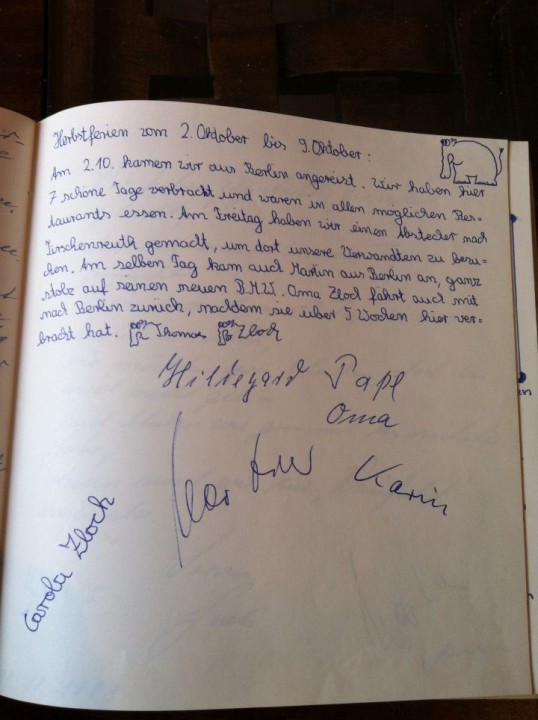 Herbstferien vom 2. Oktober bis 9. Oktober:
Am 2.10. kamen wir aus Berlin angereist. Wir haben hier
7 schöne Tage verbracht und waren in allen möglichen Res=
taurants essen. Am Freitag haben wir einen Abstecher nach
Tirschenreuth gemacht, um dort unsere Verwandten zu besu=
chen. Am selben Tag kam auch Martin aus Berlin an, ganz
stolz auf seinen neuen B.M.W. Oma Zloch fährt auch mit
nach Berlin zurück, nachdem sie über 5 Wochen hier ver=
bracht hat. Thomas Zloch
Hildegard Pape
Oma
Karin
Carola Zloch